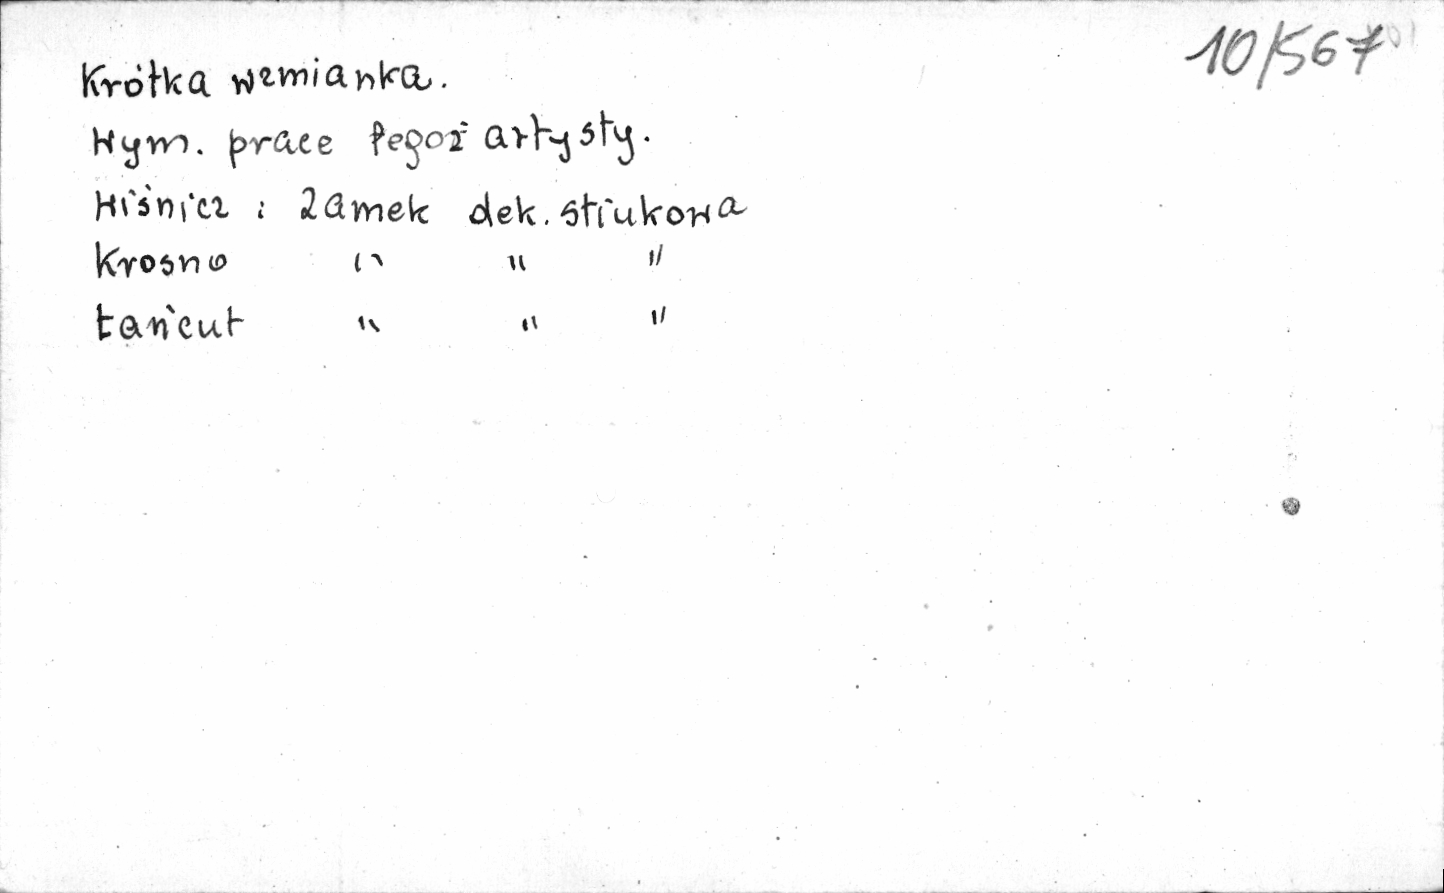 10/567
Krótka wzmianka.
Wym. prace tegoż artysty.
Wiśnicz : zamek dek. stiukowa
Krosno " " "
Łańcut " " "